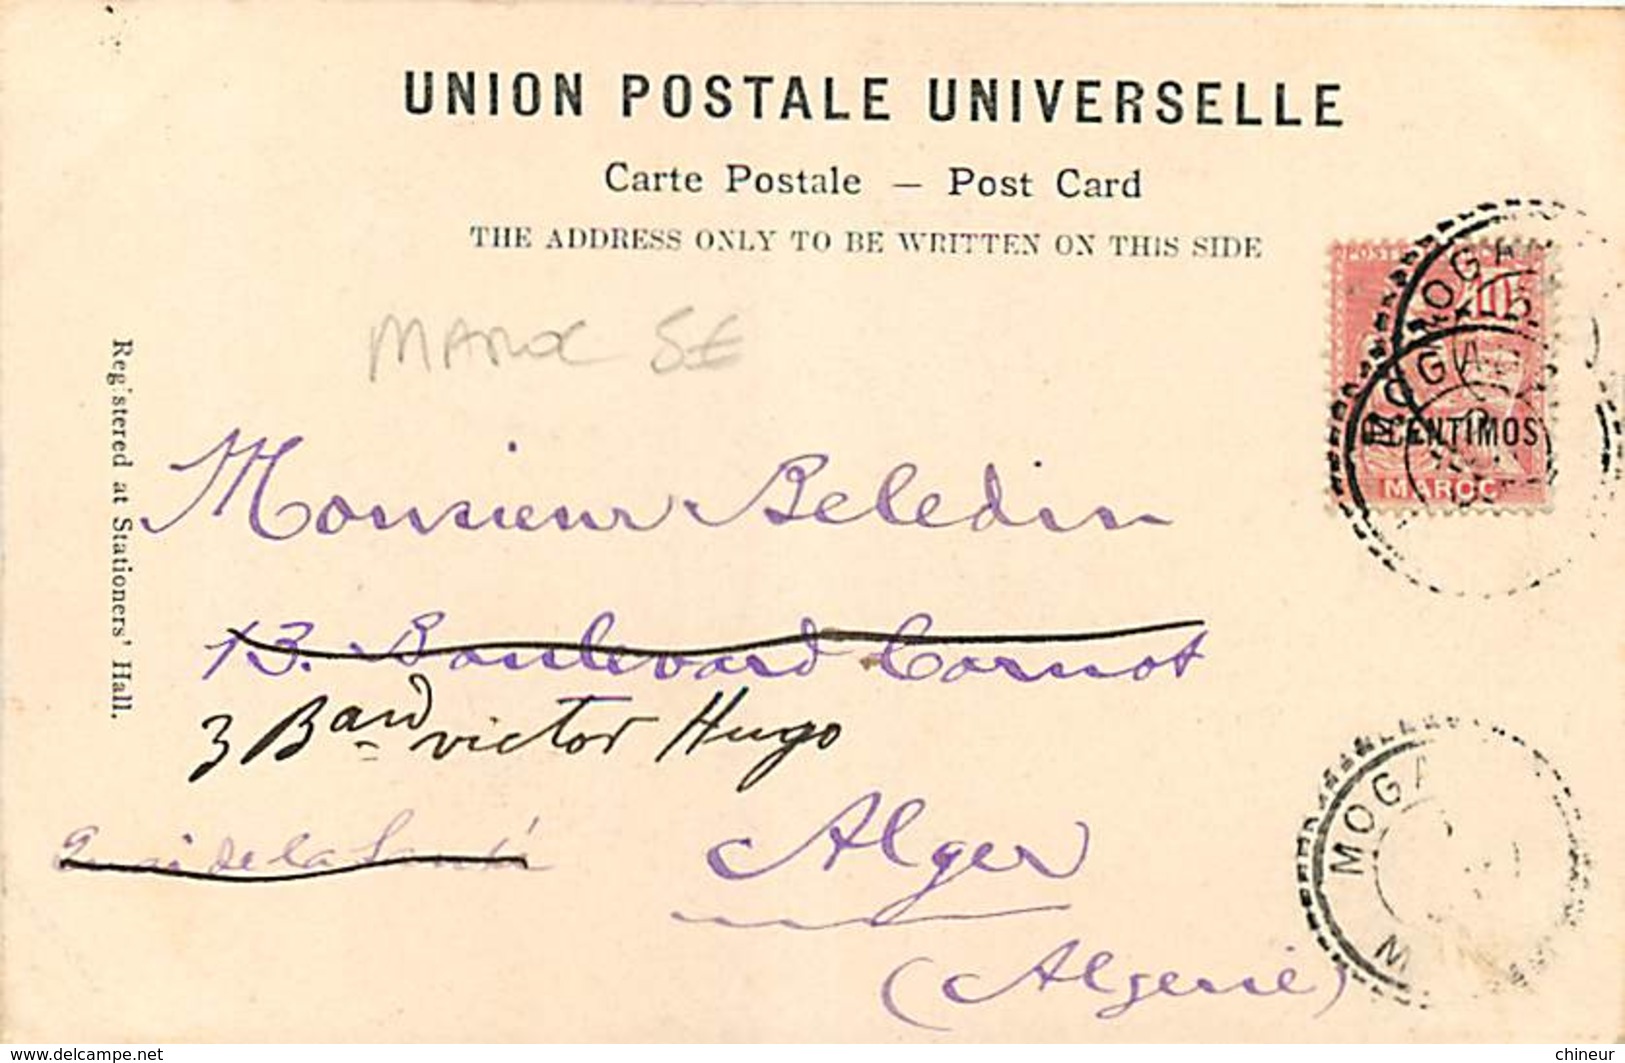 UNION POSTALE UNIVERSELLE
Carte Postale — Post Card
THE ADDRESS ONLY TO BE WRITTEN ON THIS SIDE
POST 10
MOGA
MOGA
CENTIMOS
MAROC
MAROC 5E
Reg'stered at Stationers' Hall.
Monsieur Beledin
13. Boulevard Carnot
3 Bard victor Hugo
de la Santé
Alger
(Algerie)
MOGA
M
www.delcampe.net
chineur